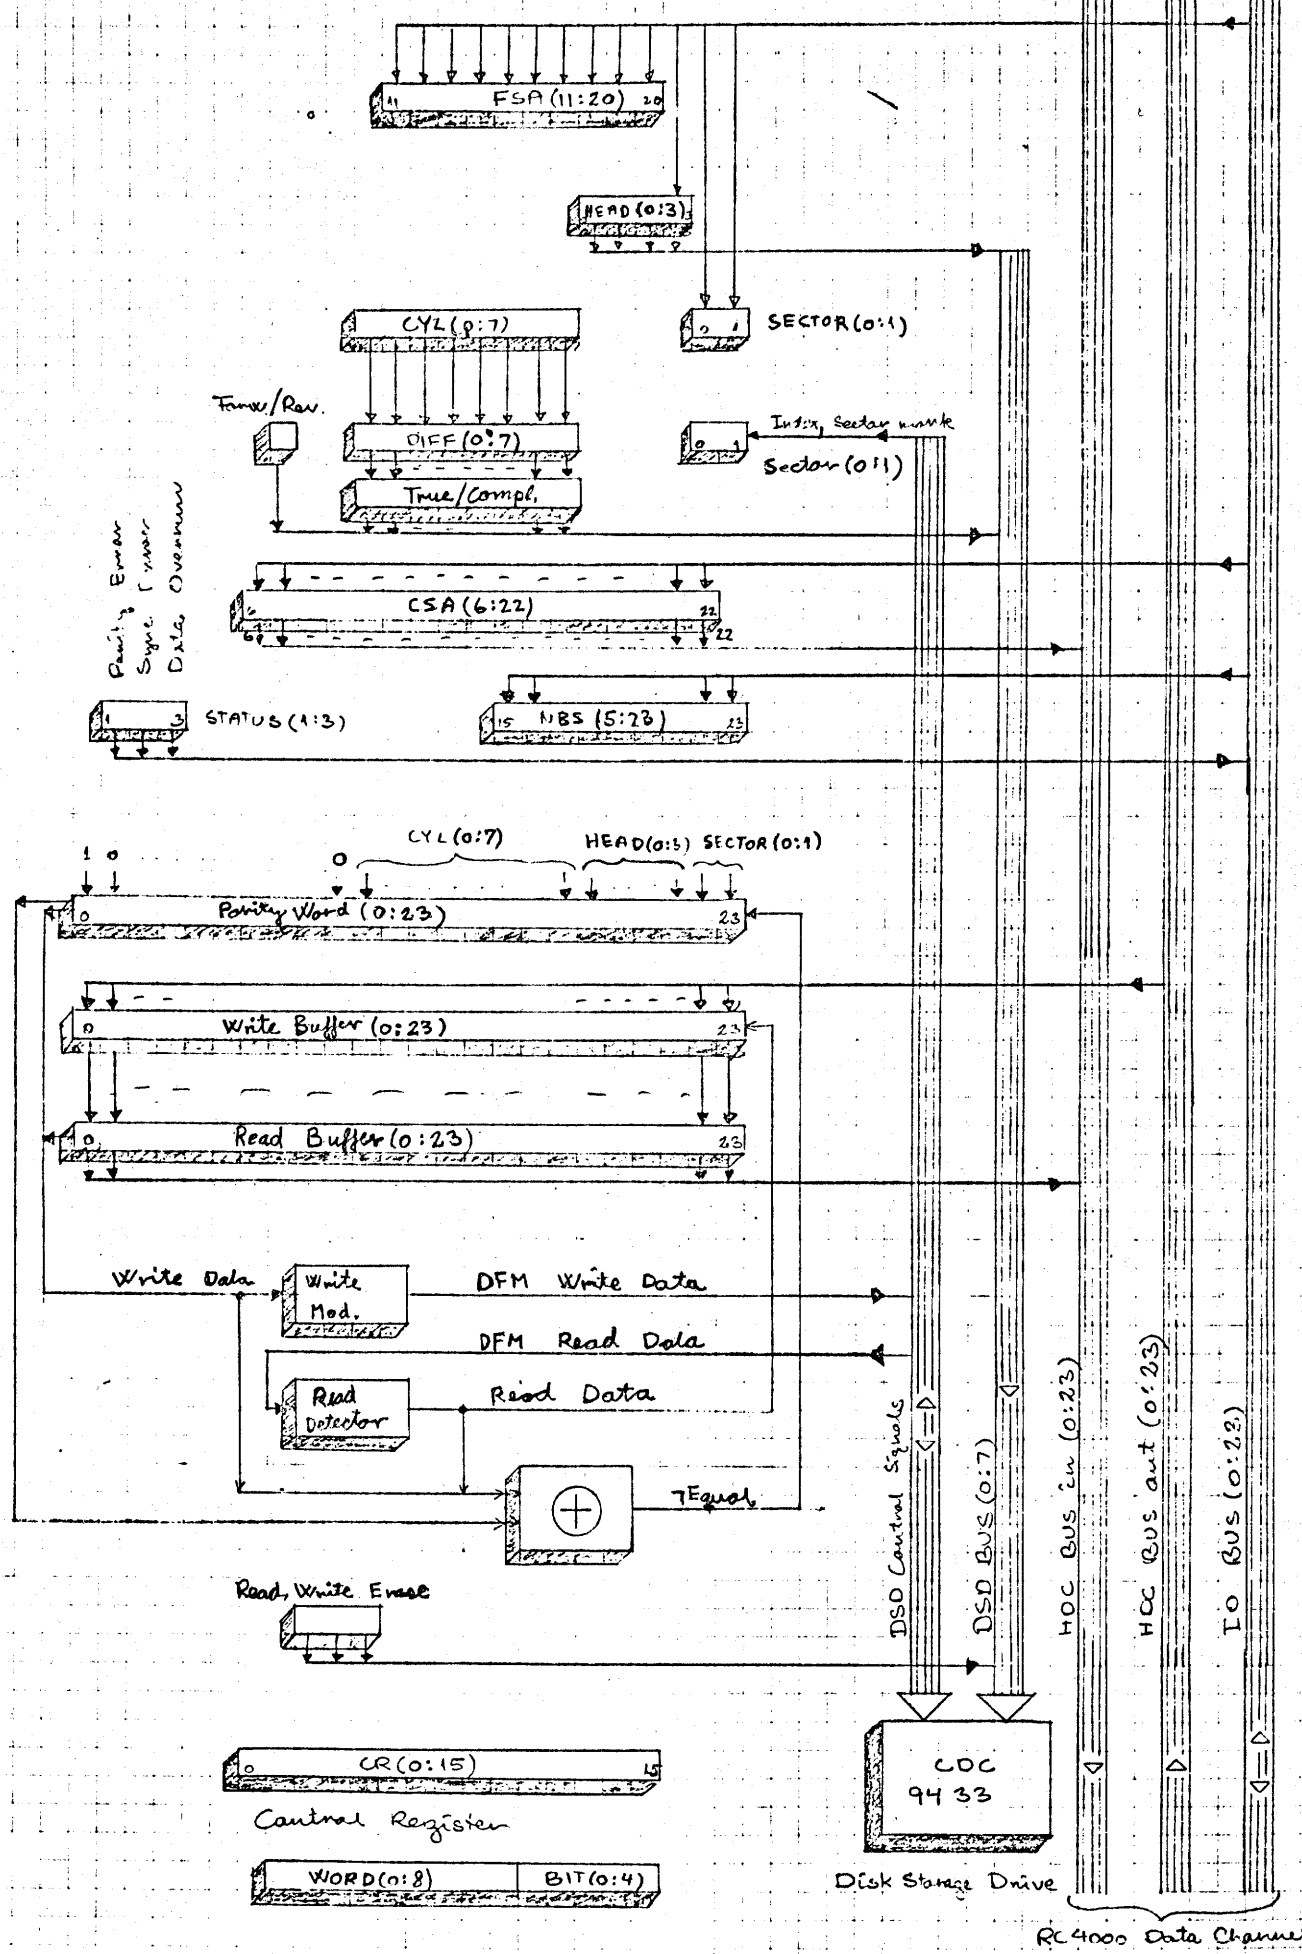 11 FSA (11:20) 20
HEAD (0:3)
CYL (0:7)
0 1 SECTOR (0:1)
Forw./Rev.
DIFF (0:7)
Index, Sector mark
0 1
Sector (0:1)
True/Compl.
Parity Error
Sync. Error
Data Overrun
6 CSA (6:22) 22
6 22
1 3 STATUS (1:3)
15 NBS (5:23) 23
CYL (0:7) HEAD (0:3) SECTOR (0:1)
1 0 0
0 Parity Word (0:23) 23
0 Write Buffer (0:23) 23
0 Read Buffer (0:23) 23
Write Data
Write
Mod.
DFM Write Data
DFM Read Data
Read
Detector
Read Data
¬Equal
Read, Write Erase
DSD Control Signals
DSD BUS (0:7)
HDC BUS in (0:23)
HDC BUS out (0:23)
IO BUS (0:23)
0 CR (0:15) 15
Control Register
CDC
9433
WORD (0:8) BIT (0:4)
Disk Storage Drive
RC4000 Data Channel